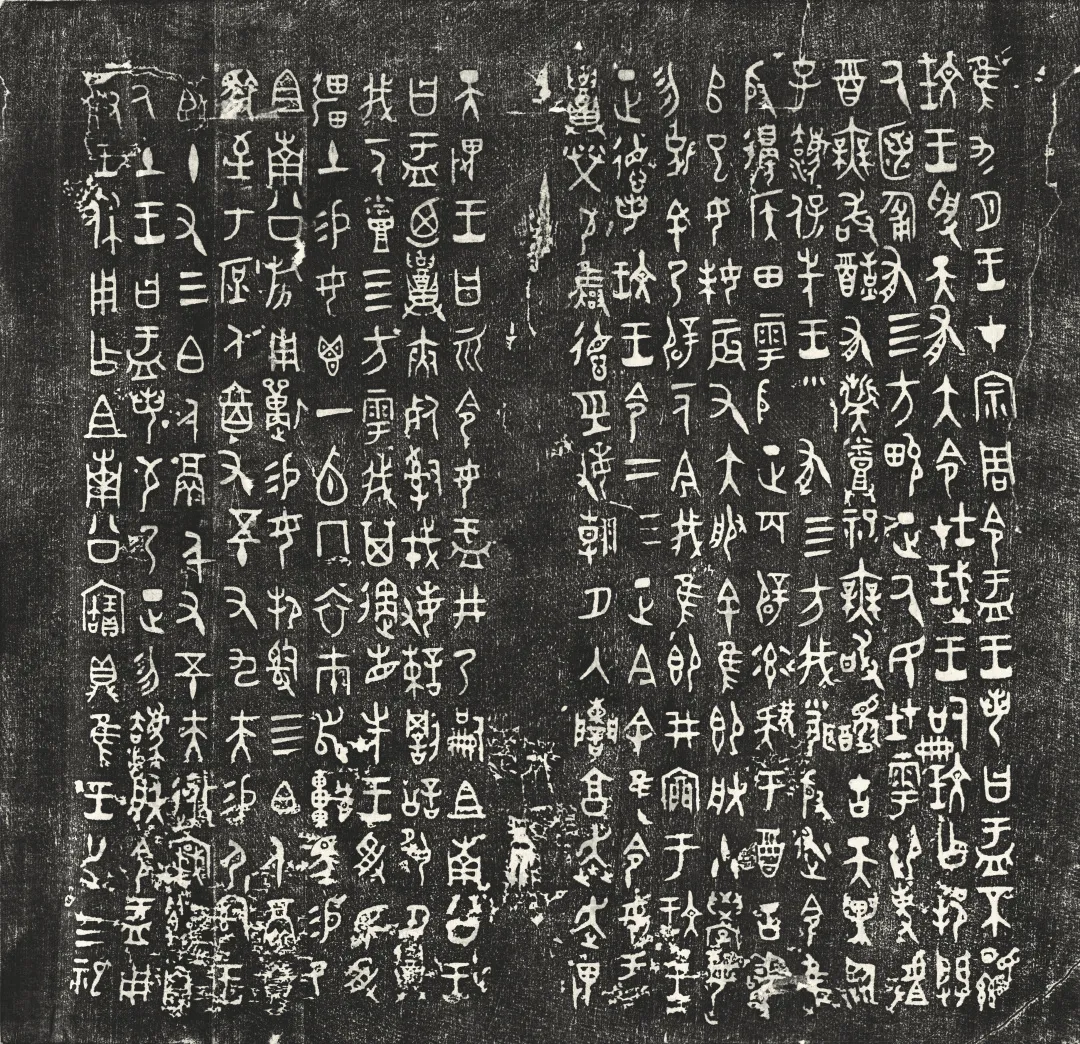 隹九月王才宗周令盂王若曰盂不顯
玟王受天有大令在珷王嗣玟乍邦闢
氒匿匍有四方畯正氒民在雩御事𠭯
酉無敢酖有髭糞祀無敢醻古天異臨
子灋保先王有四方我聞殷述令隹
殷邊𥎦田雩殷正百辟率肄于酉古喪
𠂤巳女妹辰又大服余隹即朕小學女
勿余乃辟一人今我隹即井亩于玟王
正德若玟王令二三正今余隹令女盂
𥃝榮敬雍德巠敏朝夕入讕享奔走畏
天畏王曰令女盂井乃嗣且南公王
曰盂迺𥃝夾死司戎敏諫罰訟夙夕𥃝
我一人烝四方雩我其遹省先王受民受
彊土易女鬯一卣冂衣巿舄車馬易乃
且南公旂用狩易女邦司四白人鬲自
馭至于庶人六百又五十又九夫易尸司
王臣十又三白人鬲千又五十夫遷自
氒土王曰盂若敬乃正勿灋朕令盂用
對王休用乍且南公寶鼎隹王廿又三祀